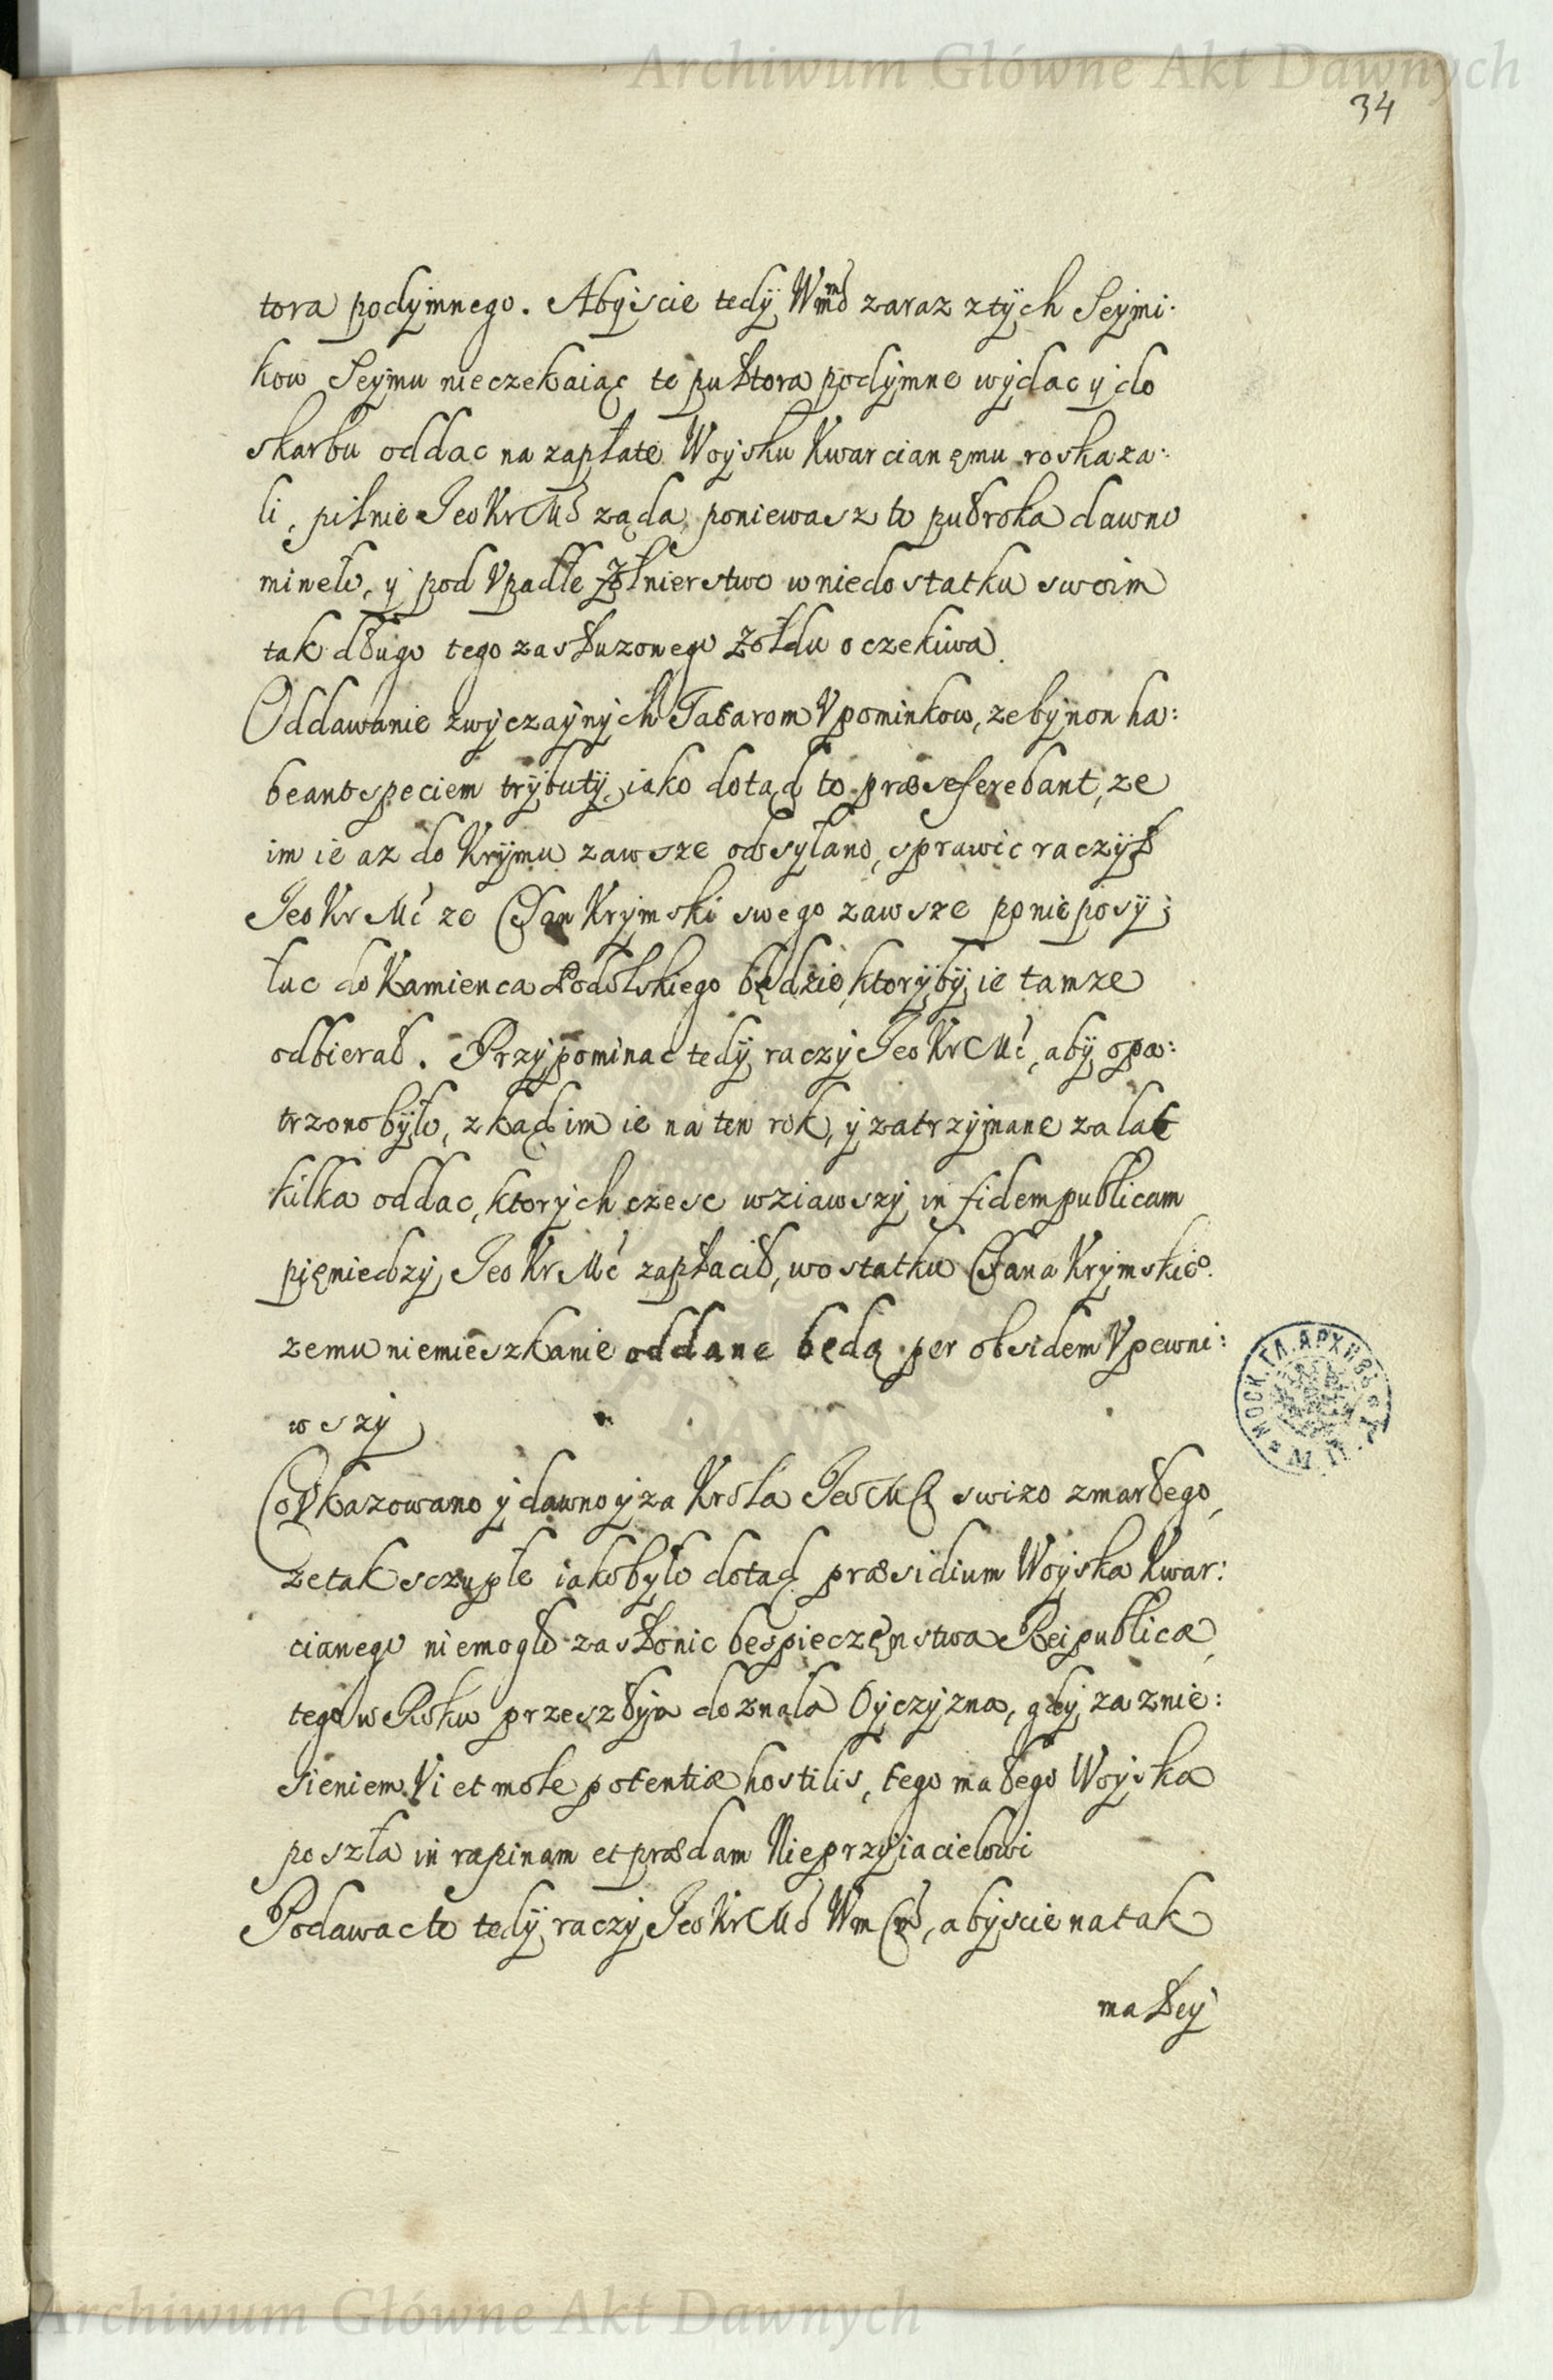 Archiwum Główne Akt Dawnych
34
tora podymnego. Abyscie tedy Wmmć zaraz z tych Seymi:
kow Seymu nieczekaiąc te pułtora podymne wydac y do
skarbu oddac na zapłate Woysku Kwarcianęmu roskaza:
li, pilnie Jeo Kr Mć ząda, poniewasz to pułroka dawno
mineło, y pod Vpadłe Zołnierstwo w niedostatku swoim
tak długo tego zasłuzonego Zołdu oczekiwa.
Oddawanie zwyczaynych Tatarom Vpominkow, zeby non ha:
beant speciem trybuty, iako dotąd to præseferebant, ze
im ie az do Krymu zawsze odsyłano, sprawic raczył
Jeo Kr Mć ze Chan Krymski swego zawsze ponie posy:
łac do Kamienca Podolskiego będzie, ktoryby ie tamze
odbierał. Przypominac tedy raczy Jeo Kr Mć, aby opa:
trzono było, zkąd im ie na ten rok, y zatrzymane za lat
kilka oddac, ktorych czesc wziawszy in fidem publicam
pięniedzy Jeo Kr Mć zapłacił, w ostatku Chana Krymskieo.
zemu niemieszkanie oddane będą per obsidem Vpewni:
wszy
Co Vkazowano y dawno y za Krola Jeo Mci swizo zmarłego,
ze tak sczupłe iako było dotąd præsidium Woyska Kwar:
cianego niemogło zasłonic bespieczęnstwa Reipublicæ,
tego w Roku przeszłym doznała Oyczyzna, gdy za znie:
sieniem Vi et mole potentiæ hostilis, tego małego Woyska
poszła in rapinam et prædam Nieprzyiacielowi
Podawac to tedy raczy Jeo Kr Mć Wm, abyscie na tak
małey
МОСК. ГЛ. АРХИВЪ
Archiwum Główne Akt Dawnych